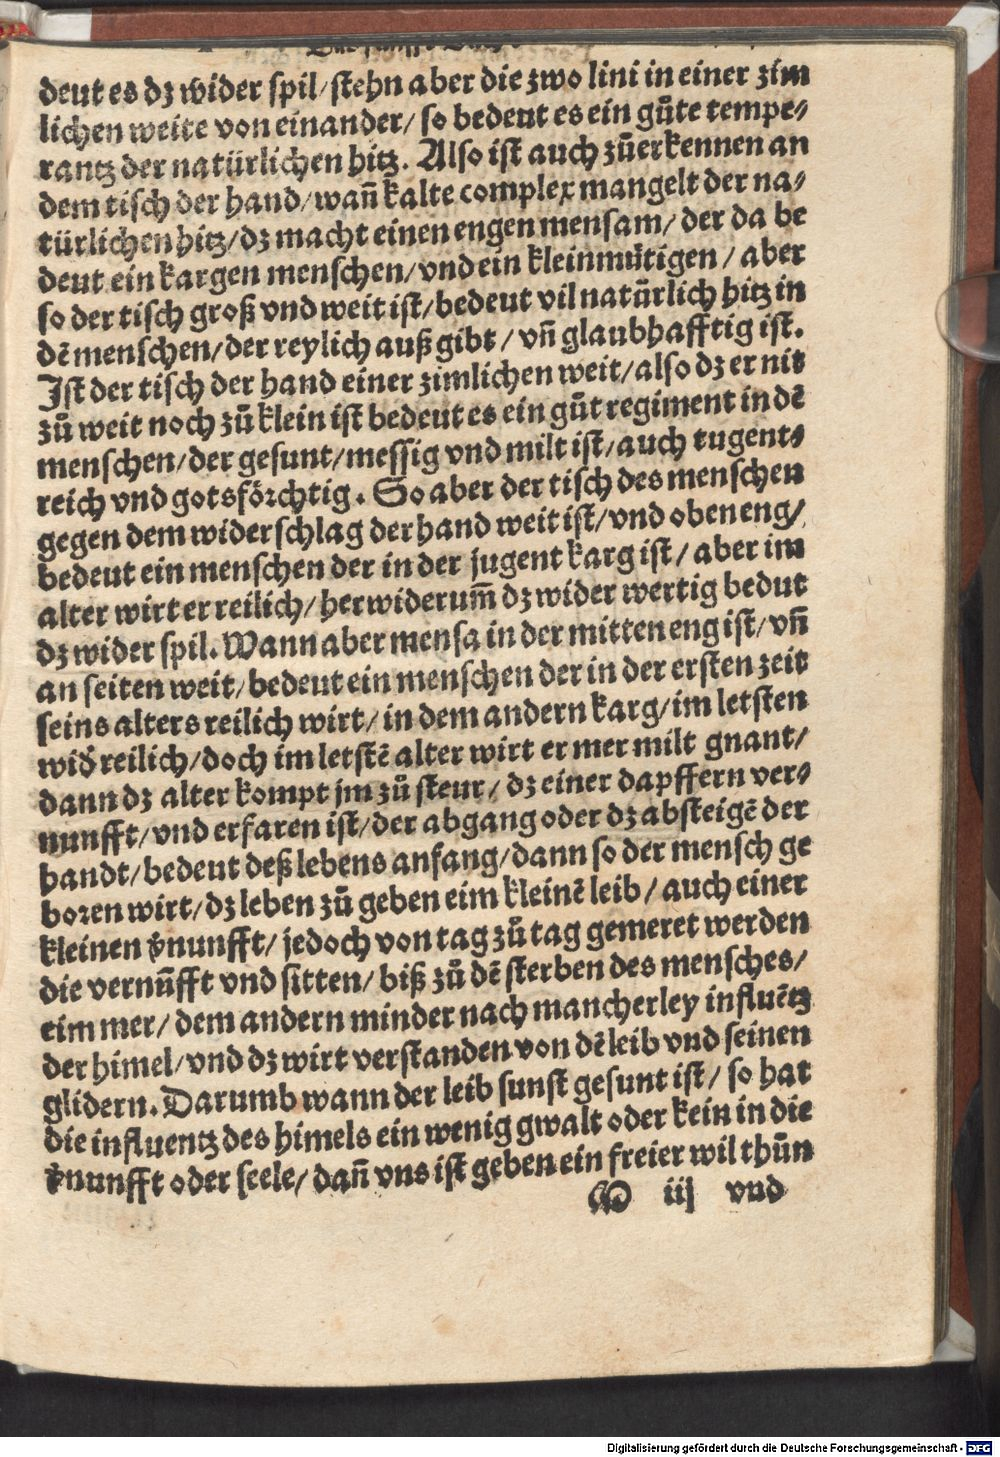 deut es dz wider spil/stehn aber die zwo lini in einer zim
lichen weite von einander/ so bedeut es ein gůte tempe⸗
rantz der natürlichen hitz. Also ist auch zůerkennen an
dem tisch der hand/wañ kalte complex mangelt der na⸗
türlichen hitz/dz macht einen engen mensam/ der da be
deut ein kargen menschen/vnd ein kleinmütigen/ aber
so der tisch groß vnd weit ist/bedeut vil natürlich hitz in
dē menschen/der reylich auß gibt/ vñ glaubhafftig ist.
Ist der tisch der hand einer zimlichen weit/also dz er nit
zů weit noch zů klein ist bedeut es ein gůt regiment in dē
menschen/der gesunt/messig vnd milt ist/auch tugent⸗
reich vnd gotsförchtig. So aber der tisch des menschen
gegen dem widerschlag der hand weit ist/vnd oben eng/
bedeut ein menschen der in der jugent karg ist/ aber im
alter wirt er reilich/herwiderum̃ dz wider wertig bedut
dz wider spil. Wann aber mensa in der mitten eng ist/vñ
an seiten weit/bedeut ein menschen der in der ersten zeit
seins alters reilich wirt/ in dem andern karg/im letsten
wid̕ reilich/doch im letstē alter wirt er mer milt gnant/
dann dz alter kompt jm zů steur/ dz einer dapffern ver⸗
nunfft/vnd erfaren ist/der abgang oder dz absteigē der
handt/bedeut deß lebens anfang/dann so der mensch ge
boren wirt/dz leben zů geben eim kleinē leib/ auch einer
kleinen v̕nunfft/ jedoch von tag zů tag gemeret werden
die vernũfft vnd sitten/ biß zů dē sterben des mensches/
eim mer/ dem andern minder nach mancherley influētz
der himel/vnd dz wirt verstanden von dē leib vnd seinen
glidern. Darumb wann der leib sunst gesunt ist/ so hat
die influentz des himels ein wenig gwalt oder kein in die
v̕nunfft oder seele/ dañ vns ist geben ein freier wil thůn
iij vnd
Digitalisierung gefördert durch die Deutsche Forschungsgemeinschaft - DFG